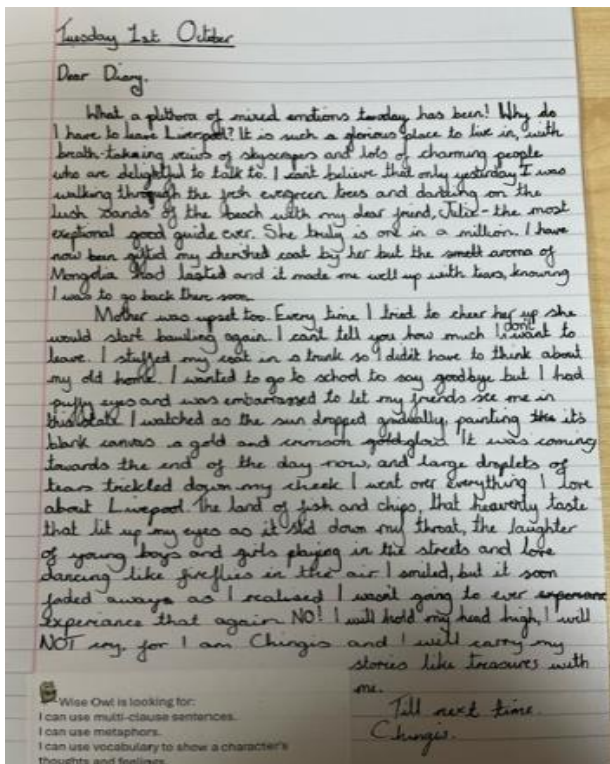 Tuesday 1st October
Dear Diary,
What a plithora of mixed emotions tuesday has been! Why do
I have to leave Liverpool? It is such a glorious place to live in, with
breath-takeing veiws of skyscrapers and lots of charming people
who are delightful to talk to. I cant believe that only yesterday I was
walking through the fresh evergreen trees and darting on the
lush sands of the beach with my dear friend, Julie - the most
exeptional good guide ever. She truly is one in a million. I have
now been gifted my cherished coat by her but the smell aroma of
Mongolia had lasted and it made me well up with tears, knowing
I was to go back there soon.
Mother was upset too. Every time I tried to cheer her up she
would start bawling again. I cant tell you how much I don't want to
leave. I stuffed my coat in a trunk so I didn't have to think about
my old home. I wanted to go to school to say goodbye but I had
puffy eyes and was embarrassed to let my friends see me in
this state. I watched as the sun dropped gradually, painting the it's
blank canvas a gold and crimson glow. It was coming
towards the end of the day now, and large droplets of
tears trickled down my cheek I went over everything I love
about Liverpool. The land of fish and chips, that heavenly taste
that lit up my eyes as it slid down my throat, the laughter
of young boys and girls playing in the streets and love
dancing like fireflies in the air I smiled, but it soon
faded away as I realised I wasn't going to ever
experiance that again NO! I will hold my head high, I will
NOT cry, for I am Chingis and I will carry my
stories like treasures with
me.
Till next time.
Chingis.
Wise Owl is looking for:
I can use multi-clause sentences.
I can use metaphors.
I can use vocabulary to show a character's
thoughts and feelings